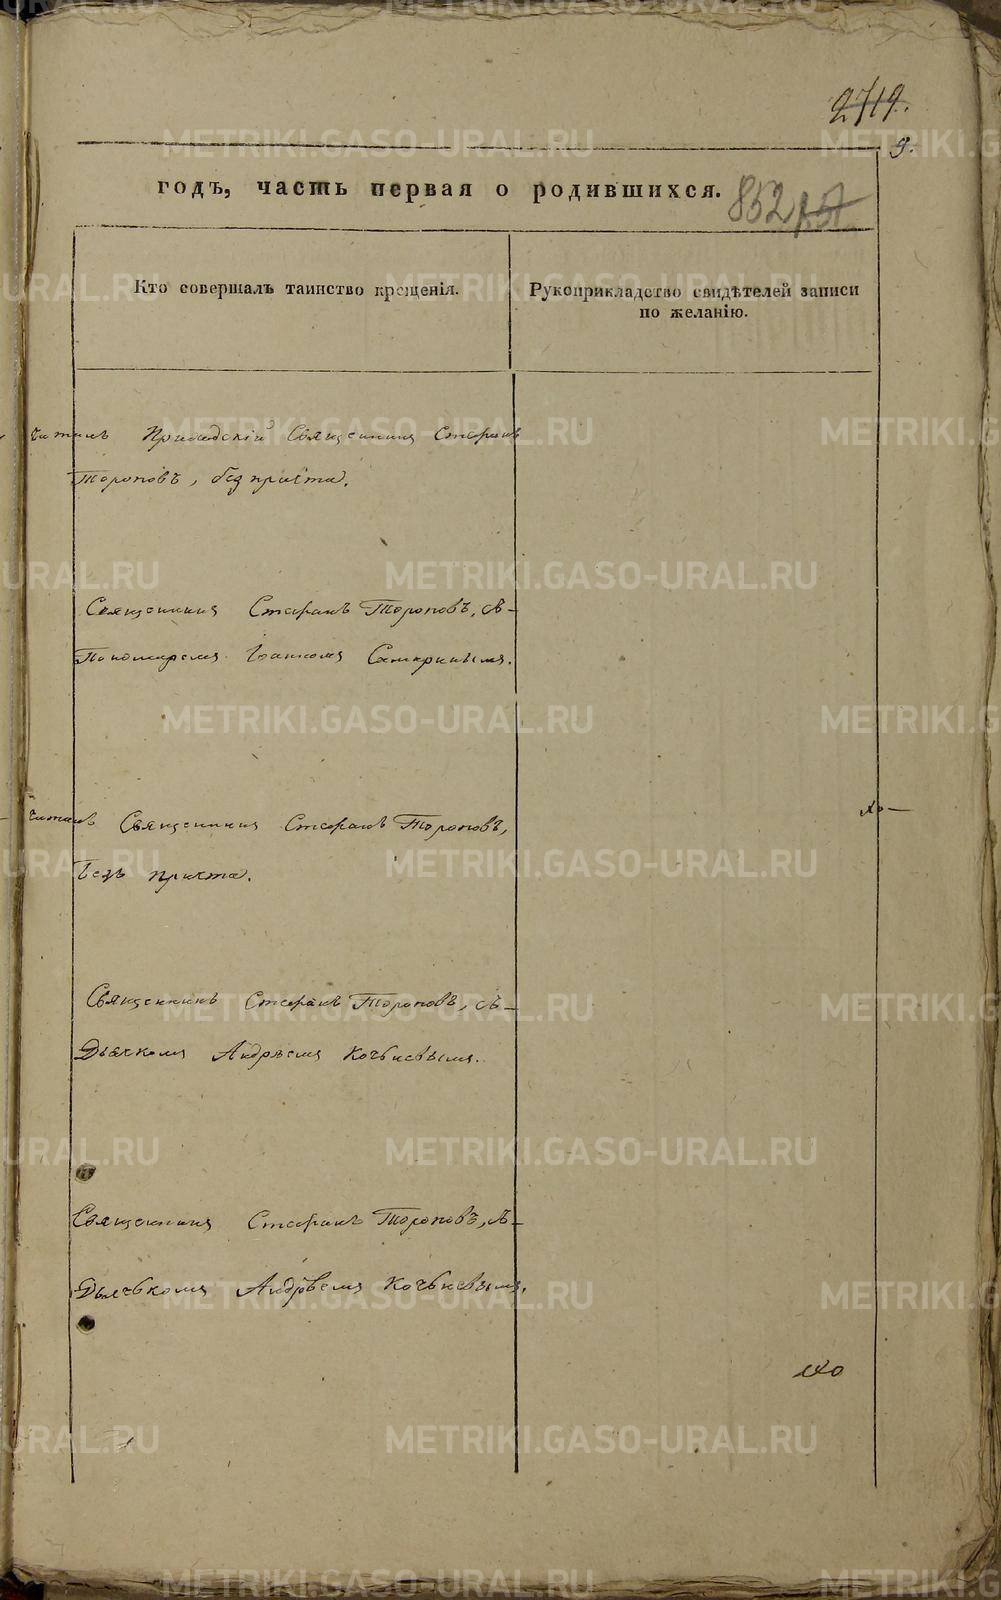 2719.
9.
годъ, часть первая о родившихся.
852
Кто совершалъ таинство крещенія.
Рукоприкладство свидѣтелей записи
по желанію.
Приходскій Священникъ Стефанъ
Тороповъ, без причта.
Священникъ Стефанъ Тороповъ, съ
Пономаремъ Іоанномъ
Священникъ Стефанъ Тороповъ,
безъ причта.
Священникъ Стефанъ Тороповъ, съ
Дьячкомъ Андреемъ Кочневымъ.
Священникъ Стефанъ Тороповъ, съ
Дьячькомъ Андрѣемъ Кочневымъ.
METRIKI.GASO-URAL.RU